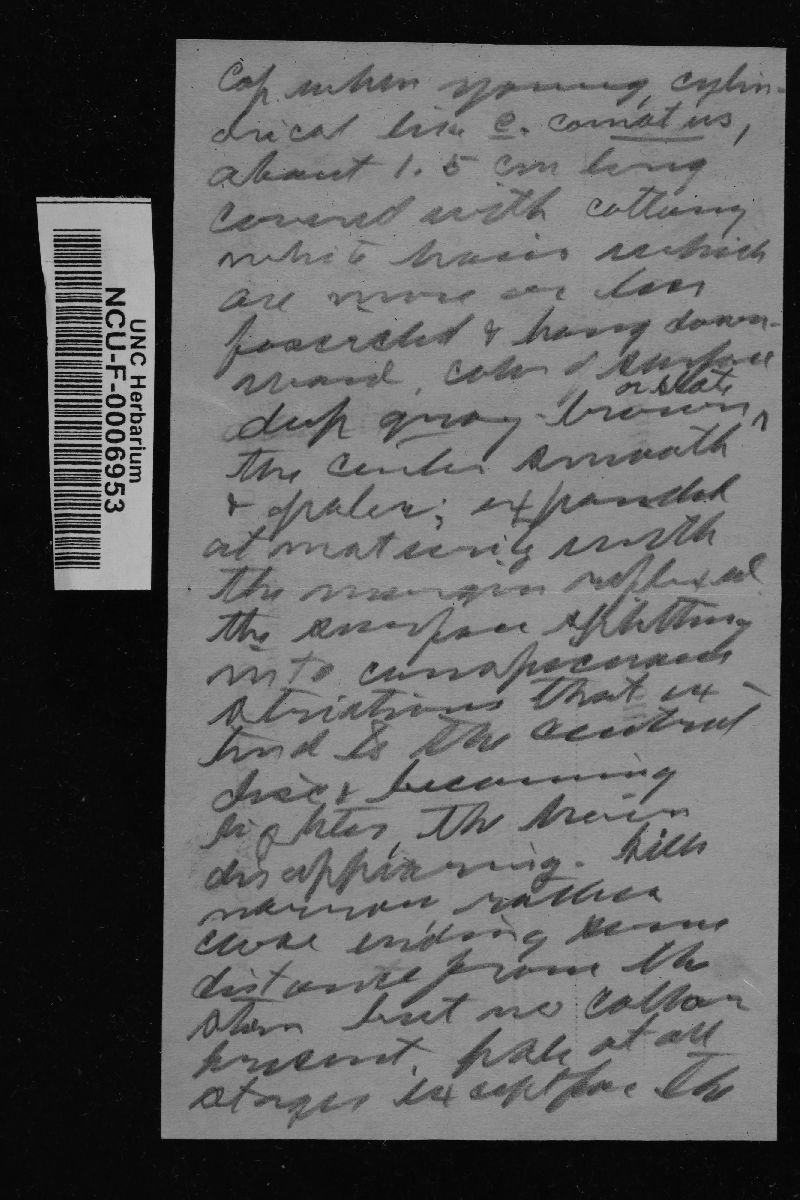 Cap when young cylin-
drical like C. comatus,
about 1.5 cm long
covered with cottony
white hairs which
are more or less
fascicled & hang down-
ward, color of surface
or slate
deep gray-brown ^
the center smooth
& paler; expanded
at maturity with
the margin reflexed
the surface splitting
into conspicuous
striations that ex-
tend to the central
disc & becoming
lighter, the hairs
disappearing. Gills
narrow rather
close ending some
distance from the
stem but no collar
present. pale at all
stages except for the
UNC Herbarium
NCU-F-0006953